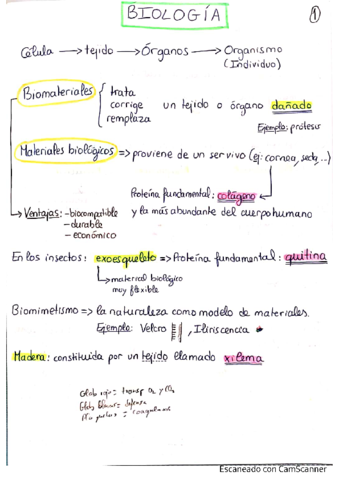 BIOLOGÍA
1
Célula → tejido → Órganos → Organismo
(Individuo)
Biomateriales { trata
corrige un tejido o órgano dañado
remplaza
Ejemplo: prótesis
Materiales biológicos => proviene de un ser vivo (ej: cornea, seda...)
Proteína fundamental: colágeno
→ Ventajas: - biocompatible y la más abundante del cuerpo humano
- durable
- económico
En los insectos: exoesqueleto => Proteína fundamental: quitina
→ material biológico
muy flexible
Biomimetismo => la naturaleza como modelo de materiales.
Ejemplo: Velcro , Iliriscencia
Madera: constituida por un tejido llamado xilema
Glob rojo = transp O₂ y
Glob blancos = defensa
= coagulante
Escaneado con CamScanner